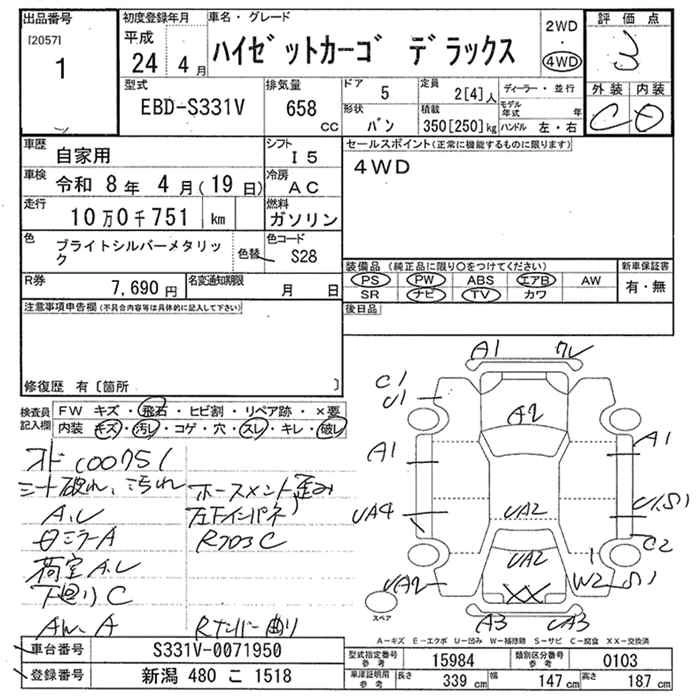 出品番号
[2057]
1
初度登録年月
平成
24 4月
車名・グレード
ハイゼットカーゴ デラックス
2WD
・
4WD
評価点
3
外装 内装
C D
型式
EBD-S331V
排気量
658 CC
ドア 5
形状 バン
定員 2[4]人
積載 350[250]kg
ディーラー・並行
モデル年式 年
ハンドル 左・右
車歴 自家用
シフト I5
車検 令和 8年 4月(19日)
冷房 AC
走行 10万0千751 km
燃料 ガソリン
色 ブライトシルバーメタリック
色替
色コード S28
R券 7,690円
名変通知期限 月 日
セールスポイント(正常に機能するものに限ります)
4WD
装備品 (純正品に限り○をつけてください)
PS PW ABS エアB AW
SR ナビ TV カワ
新車保証書
有・無
後日品
注意事項申告欄(不具合内容等は具体的に記入して下さい)
修復歴 有[箇所 ]
検査員記入欄
FW キズ・飛石・ヒビ割・リペア跡・×要
内装 キズ・汚レ・コゲ・穴・スレ・キレ・破レ
シート破れ、汚れ
A.L
荷室A.L
下廻りC
AW.A
R703C
Rナンバー曲り
A1
C1
U1
A2
A1
A1
UA4
UA2
U1.S1
C2
UA2
UA2
W2
S1
XX
A3
UA3
スペア
A-キズ E-エクボ U-凹み W-補修跡 S-サビ C-腐食 XX-交換済
車台番号 S331V-0071950
登録番号 新潟 480 こ 1518
型式指定番号 参考 15984
類別区分番号 参考 0103
車庫証明用 参考
長さ 339 cm
幅 147 cm
高さ 187 cm